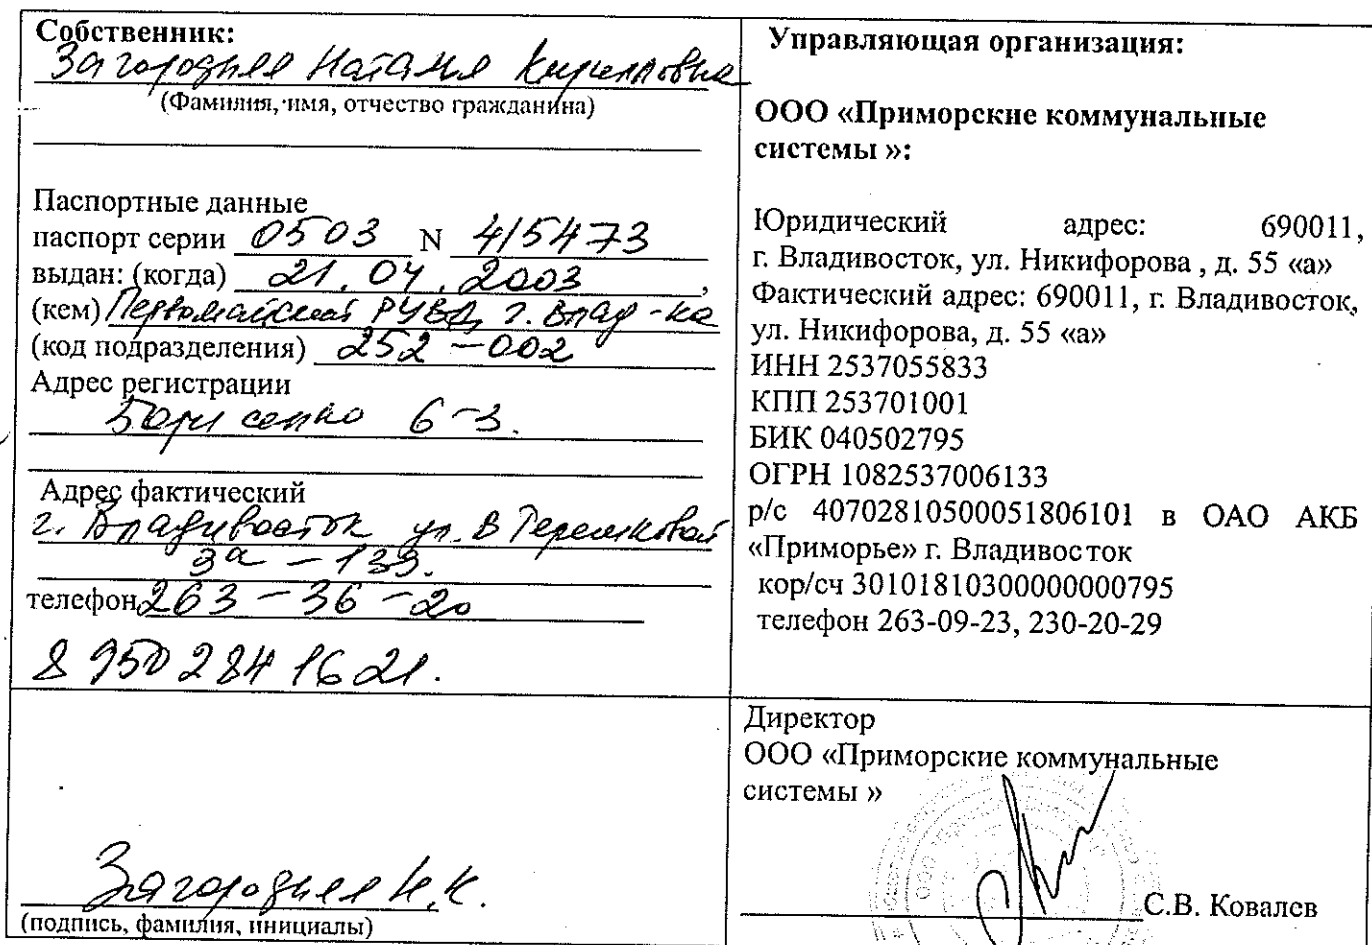 Собственник:
Загородняя Наталья Кирилловна
(Фамилия, имя, отчество гражданина)
Паспортные данные
паспорт серии 0503 N 415473
выдан: (когда) 21.04.2003,
(кем) Первомайский РУВД г. Влад-ка
(код подразделения) 252-002
Адрес регистрации
Борисенко 6-3.
Адрес фактический
г. Владивосток ул. В Терешковой
3а - 133.
телефон 263-36-20
8 950 284 16 21.
Загородняя Н.К.
(подпись, фамилия, инициалы)
Управляющая организация:
ООО «Приморские коммунальные
системы »:
Юридический адрес: 690011,
г. Владивосток, ул. Никифорова , д. 55 «а»
Фактический адрес: 690011, г. Владивосток,
ул. Никифорова, д. 55 «а»
ИНН 2537055833
КПП 253701001
БИК 040502795
ОГРН 1082537006133
р/с 40702810500051806101 в ОАО АКБ
«Приморье» г. Владивосток
кор/сч 30101810300000000795
телефон 263-09-23, 230-20-29
Директор
ООО «Приморские коммунальные
системы »
С.В. Ковалев